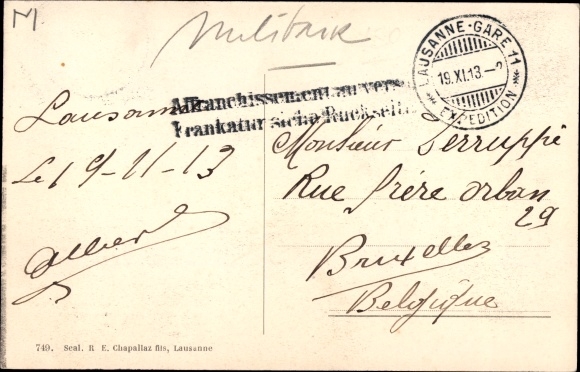 M
Militaire
LAUSANNE-GARE 11
19.XI.13.-2
EXPEDITION
Affranchissement au verso
Frankatur siehe Rückseite
Lausanne
Le 19-11-13
Albert
Monsieur Serruppé
Rue Frère Orban
29
Bruxelles
Belgique
749. Scal. R. E. Chapallaz fils, Lausanne